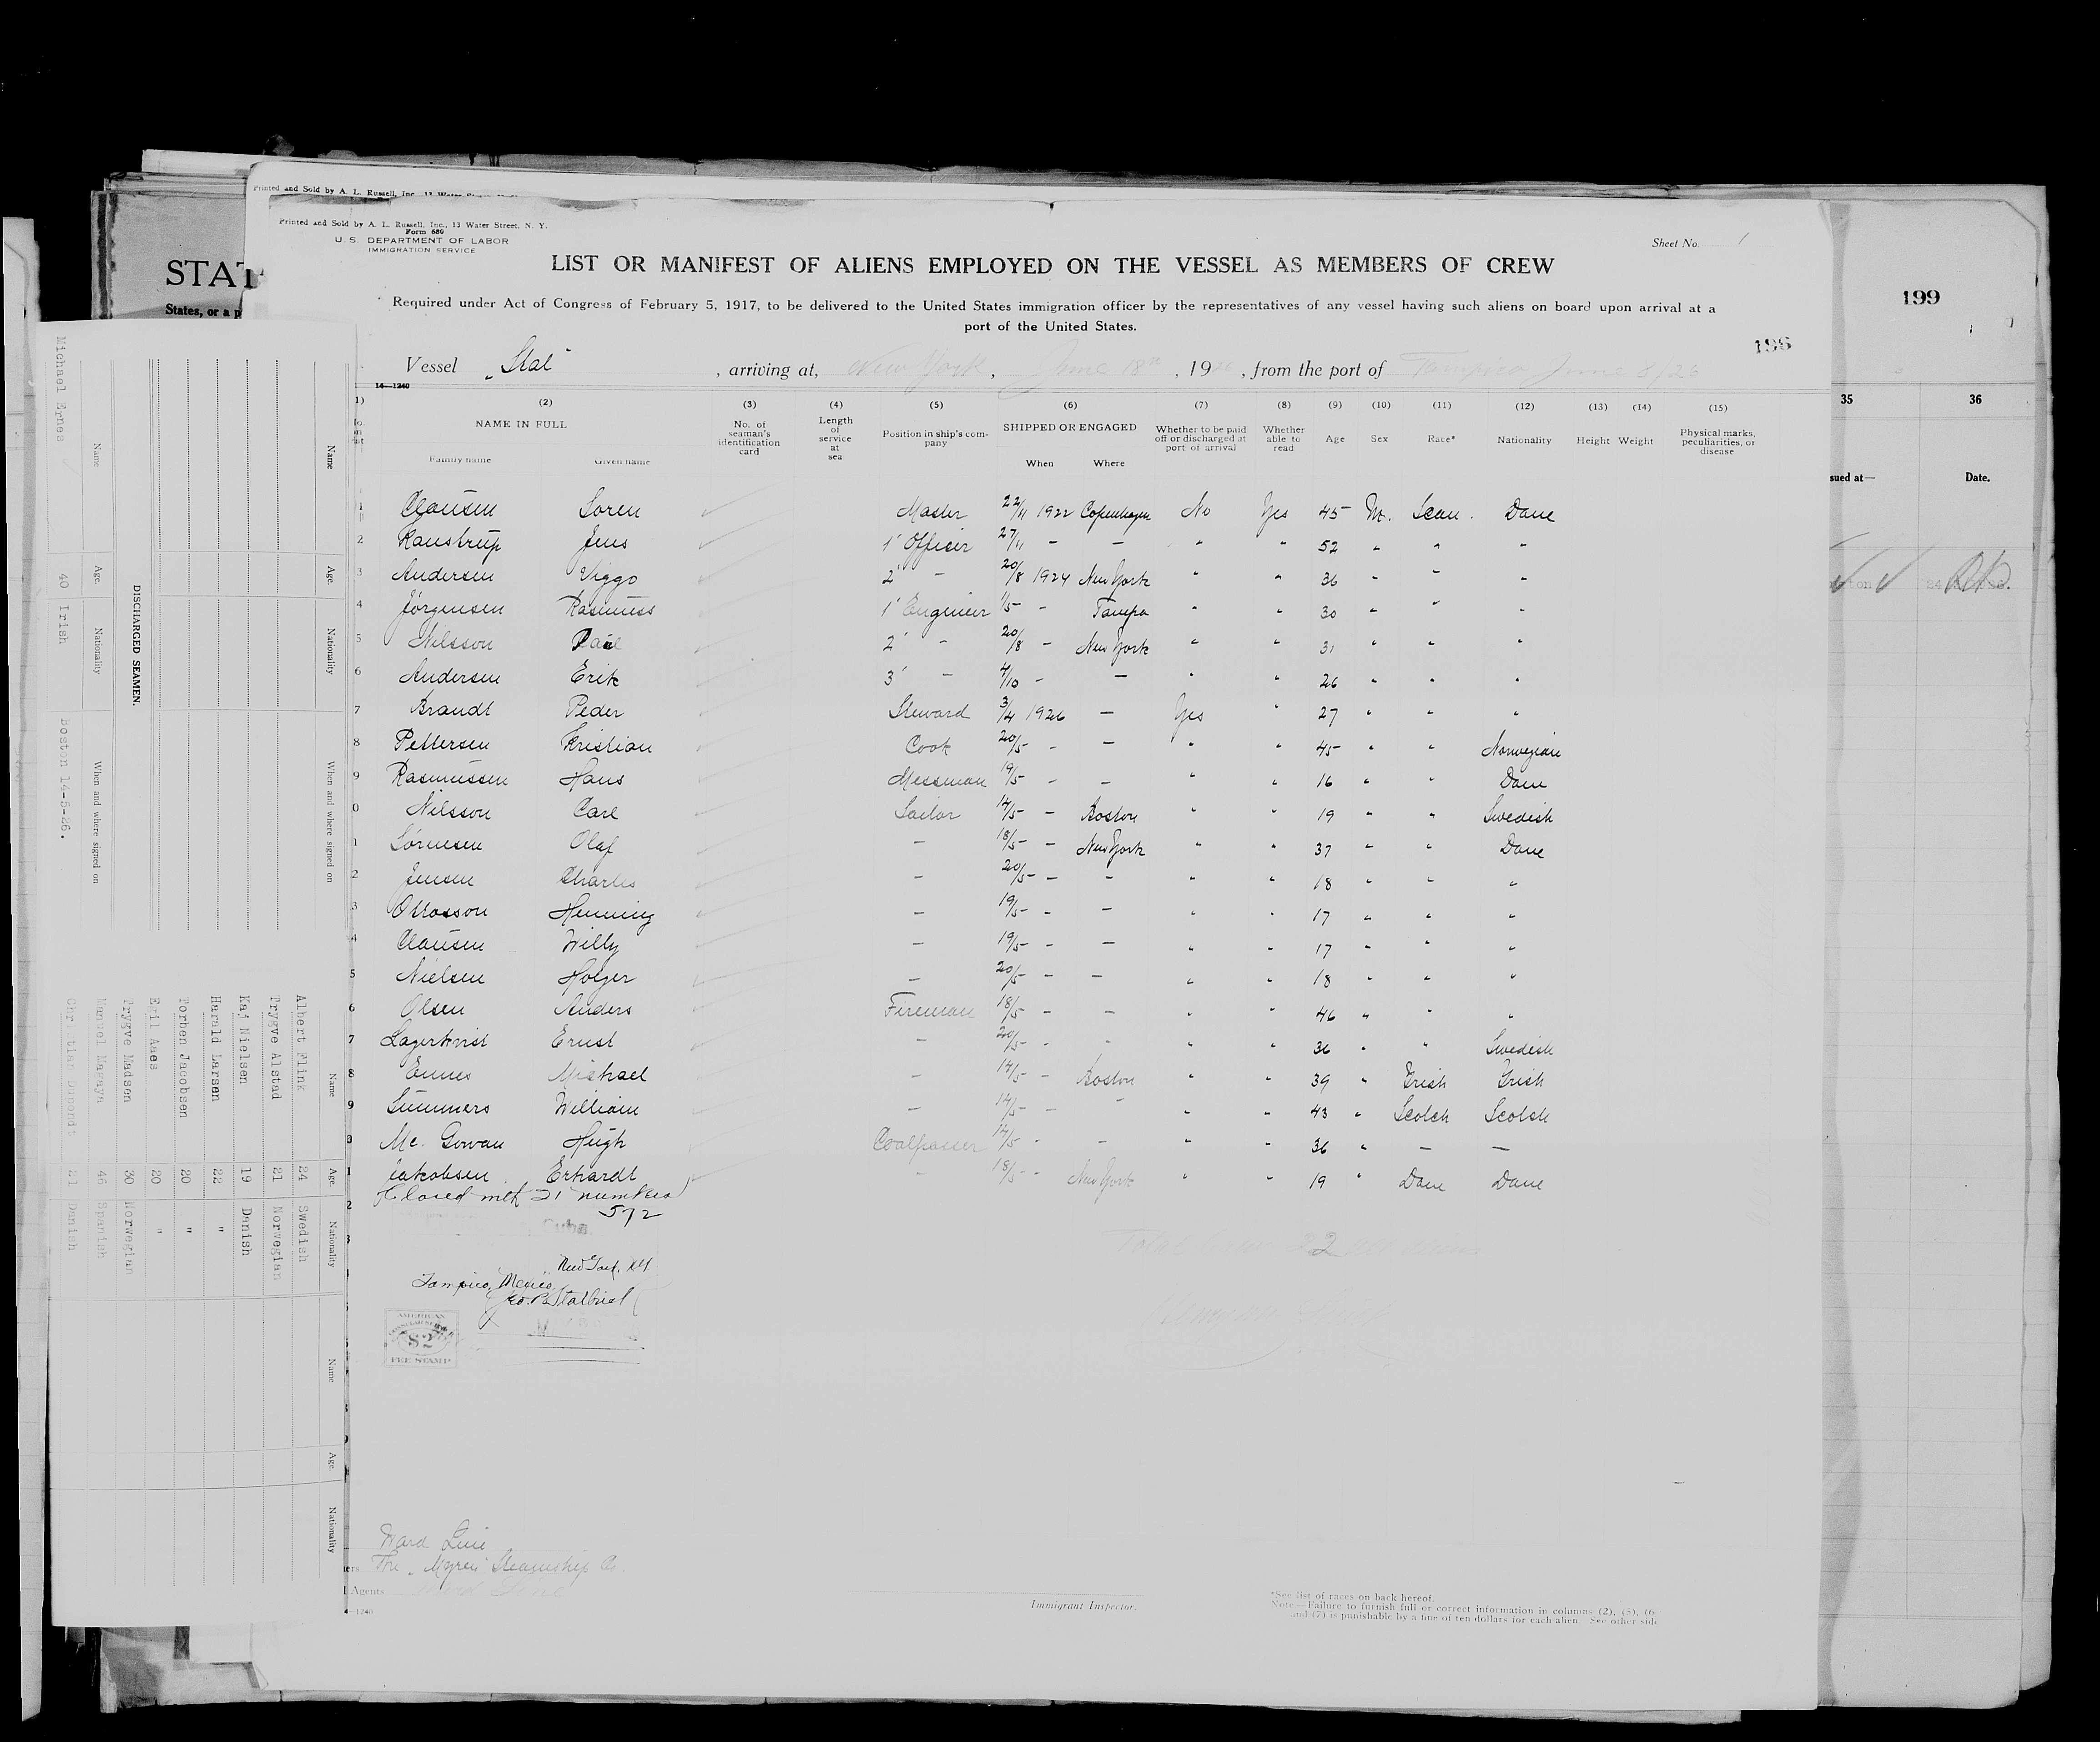 Printed and Sold by A. L. Russell, Inc., 13 Water Street, N. Y.
Form 680
U. S. DEPARTMENT OF LABOR
IMMIGRATION SERVICE
Sheet No. 1
LIST OR MANIFEST OF ALIENS EMPLOYED ON THE VESSEL AS MEMBERS OF CREW
Required under Act of Congress of February 5, 1917, to be delivered to the United States immigration officer by the representatives of any vessel having such aliens on board upon arrival at a
port of the United States.
196
Vessel "Stal" , arriving at, New York , June 18th , 1926 , from the port of Tampico June 8/26
14—1240
(2) (3) (4) (5) (6) (7) (8) (9) (10) (11) (12) (13) (14) (15)
NAME IN FULL No. of seaman's identification card Length of service at sea Position in ship's company SHIPPED OR ENGAGED Whether to be paid off or discharged at port of arrival Whether able to read Age Sex Race* Nationality Height Weight Physical marks, peculiarities, or disease
Family name Given name When Where
1 Clausen Soren Master 22/11 1922 Copenhagen No Yes 45 M. Scan. Dane
2 Raustrup Jens 1' Officer 27/11 — — " " 52 " " "
3 Andersen Viggo 2' — 20/8 1924 New York " " 36 " " "
4 Jörgensen Rasmuss 1' Engineer 1/5 — Tampa " " 30 " " "
5 Nilsson Paul 2' — 20/8 — New York " " 31 " " "
6 Andersen Erik 3' — 4/10 — — " " 26 " " "
7 Brandt Peder Steward 3/4 1926 — Yes " 27 " " "
8 Pettersen Kristian Cook 20/5 — — " " 45 " " Norwegian
9 Rasmussen Hans Messman 19/5 — — " " 16 " " Dane
0 Nilsson Carl Sailor 14/5 — Boston " " 19 " " Swedish
1 Sörensen Olaf — 18/5 — New York " " 37 " " Dane
2 Jensen Charles — 20/5 — — " " 18 " " "
3 Ottosson Henning — 19/5 — — " " 17 " " "
4 Clausen Willy — 19/5 — — " " 17 " " "
5 Nielsen Holger — 20/5 — — " " 18 " " "
6 Olsen Anders Fireman 18/5 — — " " 46 " " "
7 Lagerkvist Ernst — 20/5 — — " " 36 " " Swedish
8 Ennes Michael — 14/5 — Boston " " 39 " Irish Irish
9 Summers William — 14/5 — — " " 43 " Scotch Scotch
0 Mc. Gowan Hugh Coalpasser 14/5 — — " " 36 " — —
1 Jakobsen Erhardt — 18/5 — New York " " 19 " Dane Dane
Closed with 21 numbers
572
Cuba
Tampico, Mexico
AMERICAN
$2
FEE STAMP
Ward Line
The "Myren" Steamship Co.
Agents Ward Line
Immigrant Inspector.
*See list of races on back hereof.
Note.—Failure to furnish full or correct information in columns (2), (5), (6
and (7) is punishable by a fine of ten dollars for each alien. See other side
STAT
States, or a p
199
35 36
sued at— Date.
Name Age. Nationality When and where signed on
DISCHARGED SEAMEN.
Name Age. Nationality When and where signed on
Michael Ernes 40 Irish Boston 14-5-26.
Name Age. Nationality Name Age. Nationality
Albert Flink 24 Swedish
Trygve Alstad 21 Norwegian
Kaj Nielsen 19 Danish
Harald Larsen 22 "
Torben Jacobsen 20 "
Egil Aaes 20 "
Trygve Madsen 30 Norwegian
Manuel Masaya 46 Spanish
Christian 21 Danish